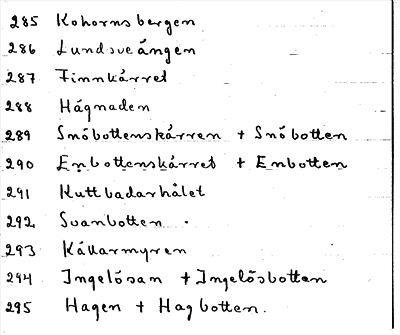 285 Kohornsbergen
286 Lundsveängen
287 Finnkärret
288 Hägnaden
289 Snöbottenskärren + Snöbotten
290 Enbottenskärret + Enbotten
291 Kuttbadarhålet
292 Svanbotten.
293 Källarmyren
294 Ingelösan + Ingelösbotten
295 Hagen + Hagbotten.